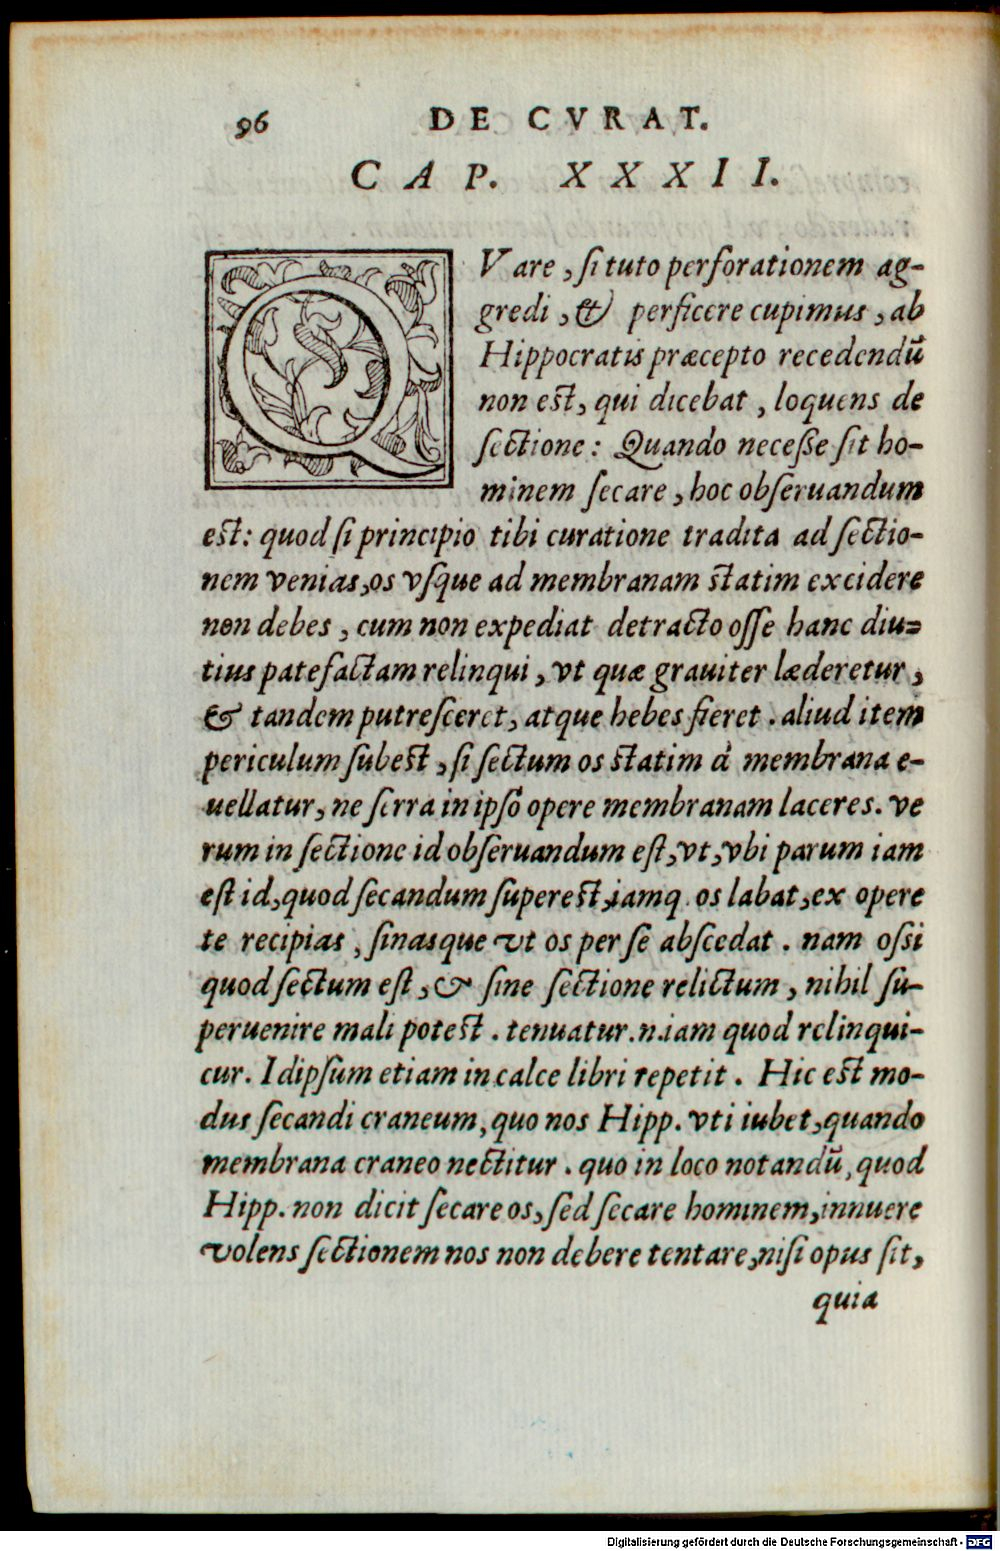 96 DE CVRAT.
CAP. XXXII.
QVare, si tuto perforationem ag-
gredi, & perficere cupimus, ab
Hippocratis præcepto recedendũ
non est, qui dicebat, loquens de
sectione: Quando necesse sit ho-
minem secare, hoc obseruandum
est: quod si principio tibi curatione tradita ad sectio-
nem venias, os vsque ad membranam statim excidere
non debes, cum non expediat detracto osse hanc diu-
tius patefactam relinqui, vt quæ grauiter læderetur,
& tandem putresceret, atque hebes fieret. aliud item
periculum subest, si sectum os statim à membrana e-
uellatur, ne serra in ipso opere membranam laceres. Ve
rum in sectione id obseruandum est, vt, vbi parum iam
est id, quod secandum superest, iamq. os labat, ex opere
te recipias, sinasque vt os per se abscedat. nam ossi
quod sectum est, & sine sectione relictum, nihil su-
peruenire mali potest. tenuatur .n. iam quod relinqui-
cur. Idipsum etiam in calce libri repetit. Hic est mo-
dus secandi craneum, quo nos Hipp. vti iubet, quando
membrana craneo nectitur. quo in loco notandũ, quod
Hipp. non dicit secare os, sed secare hominem, innuere
volens sectionem nos non debere tentare, nisi opus sit,
quia
Digitalisierung gefördert durch die Deutsche Forschungsgemeinschaft - DFG